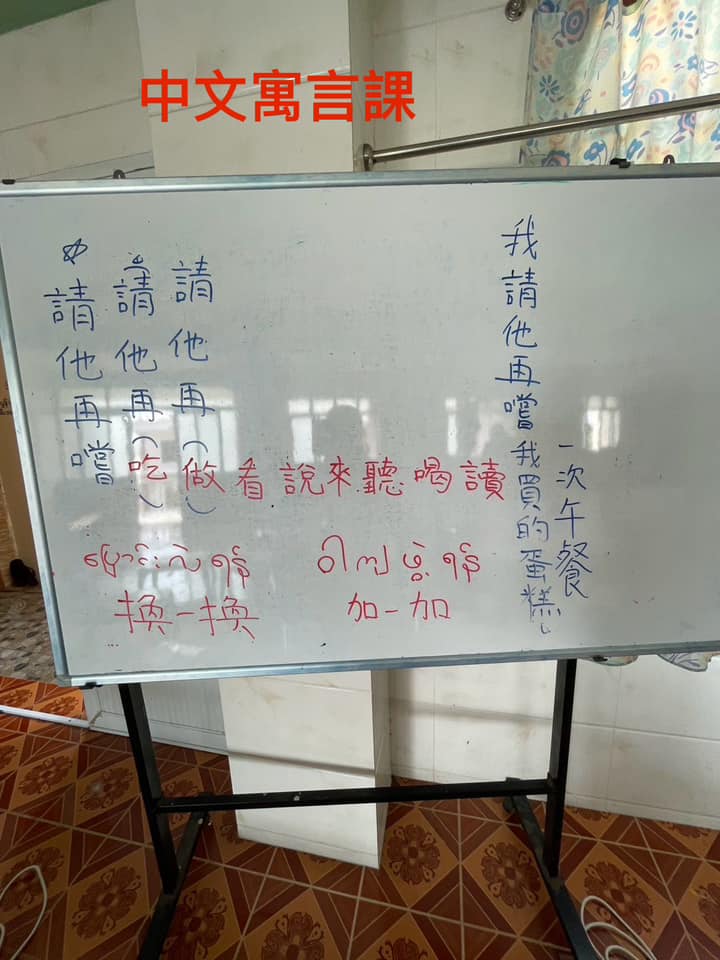 中文寓言課
請他再嚐
請他再（吃）
請他再（做）
看 說 來 聽 喝 讀
ပြောင်းလဲရန်
換一換
ဝါကျဖွဲ့ရန်
加一加
我請他再嚐我買的蛋糕。
一次午餐